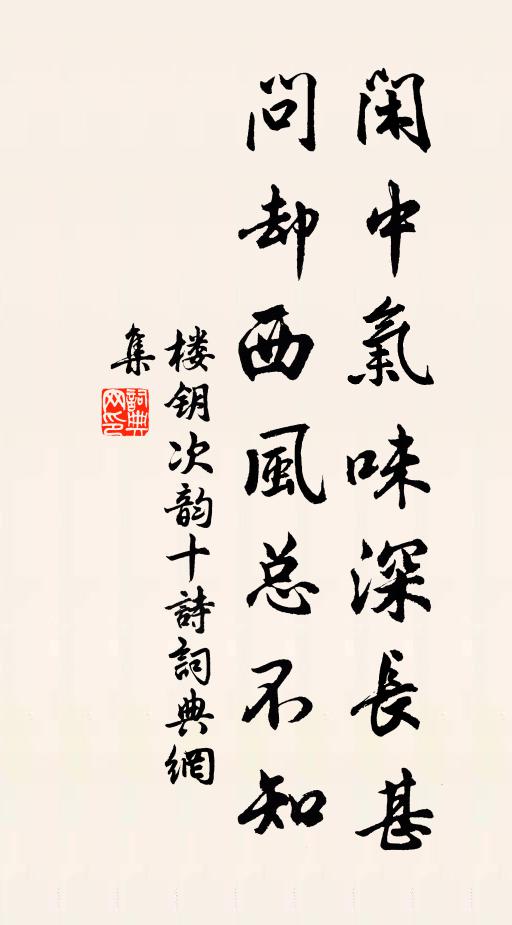 闲中氣味深長甚
问却西風总不知
楼钥次韵十詩詞典網
集
詞典
网印